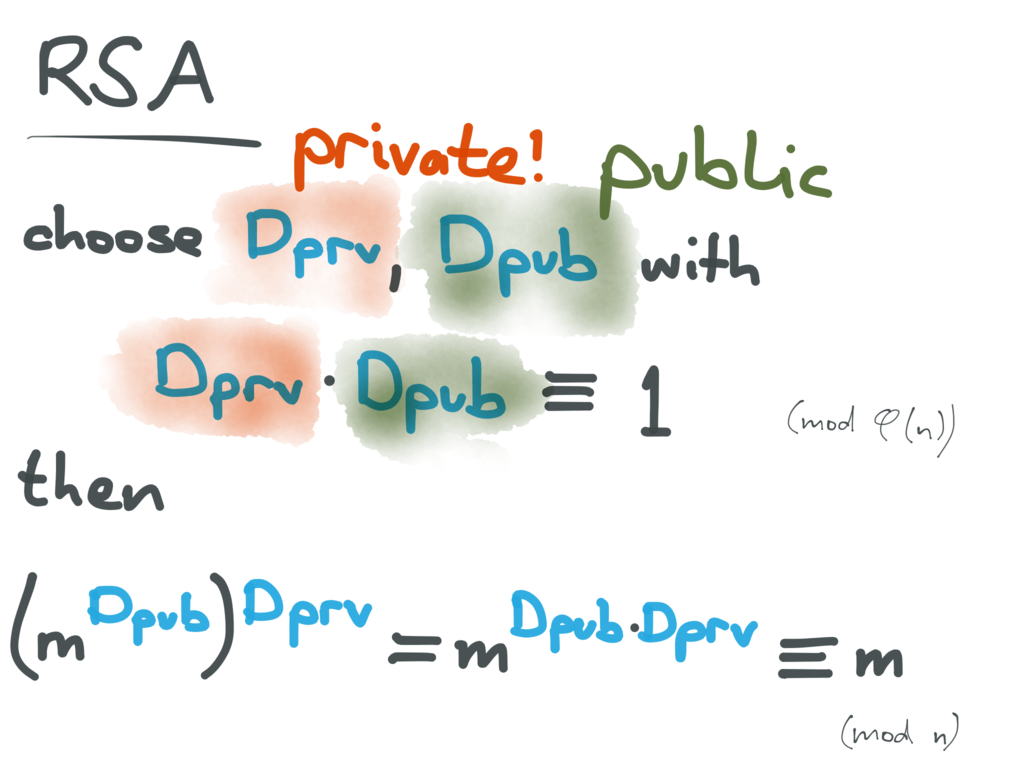 RSA
private! public
choose Dprv, Dpub with
Dprv · Dpub ≡ 1 (mod φ(n))
then
(m^Dpub)^Dprv = m^Dpub·Dprv ≡ m
(mod n)